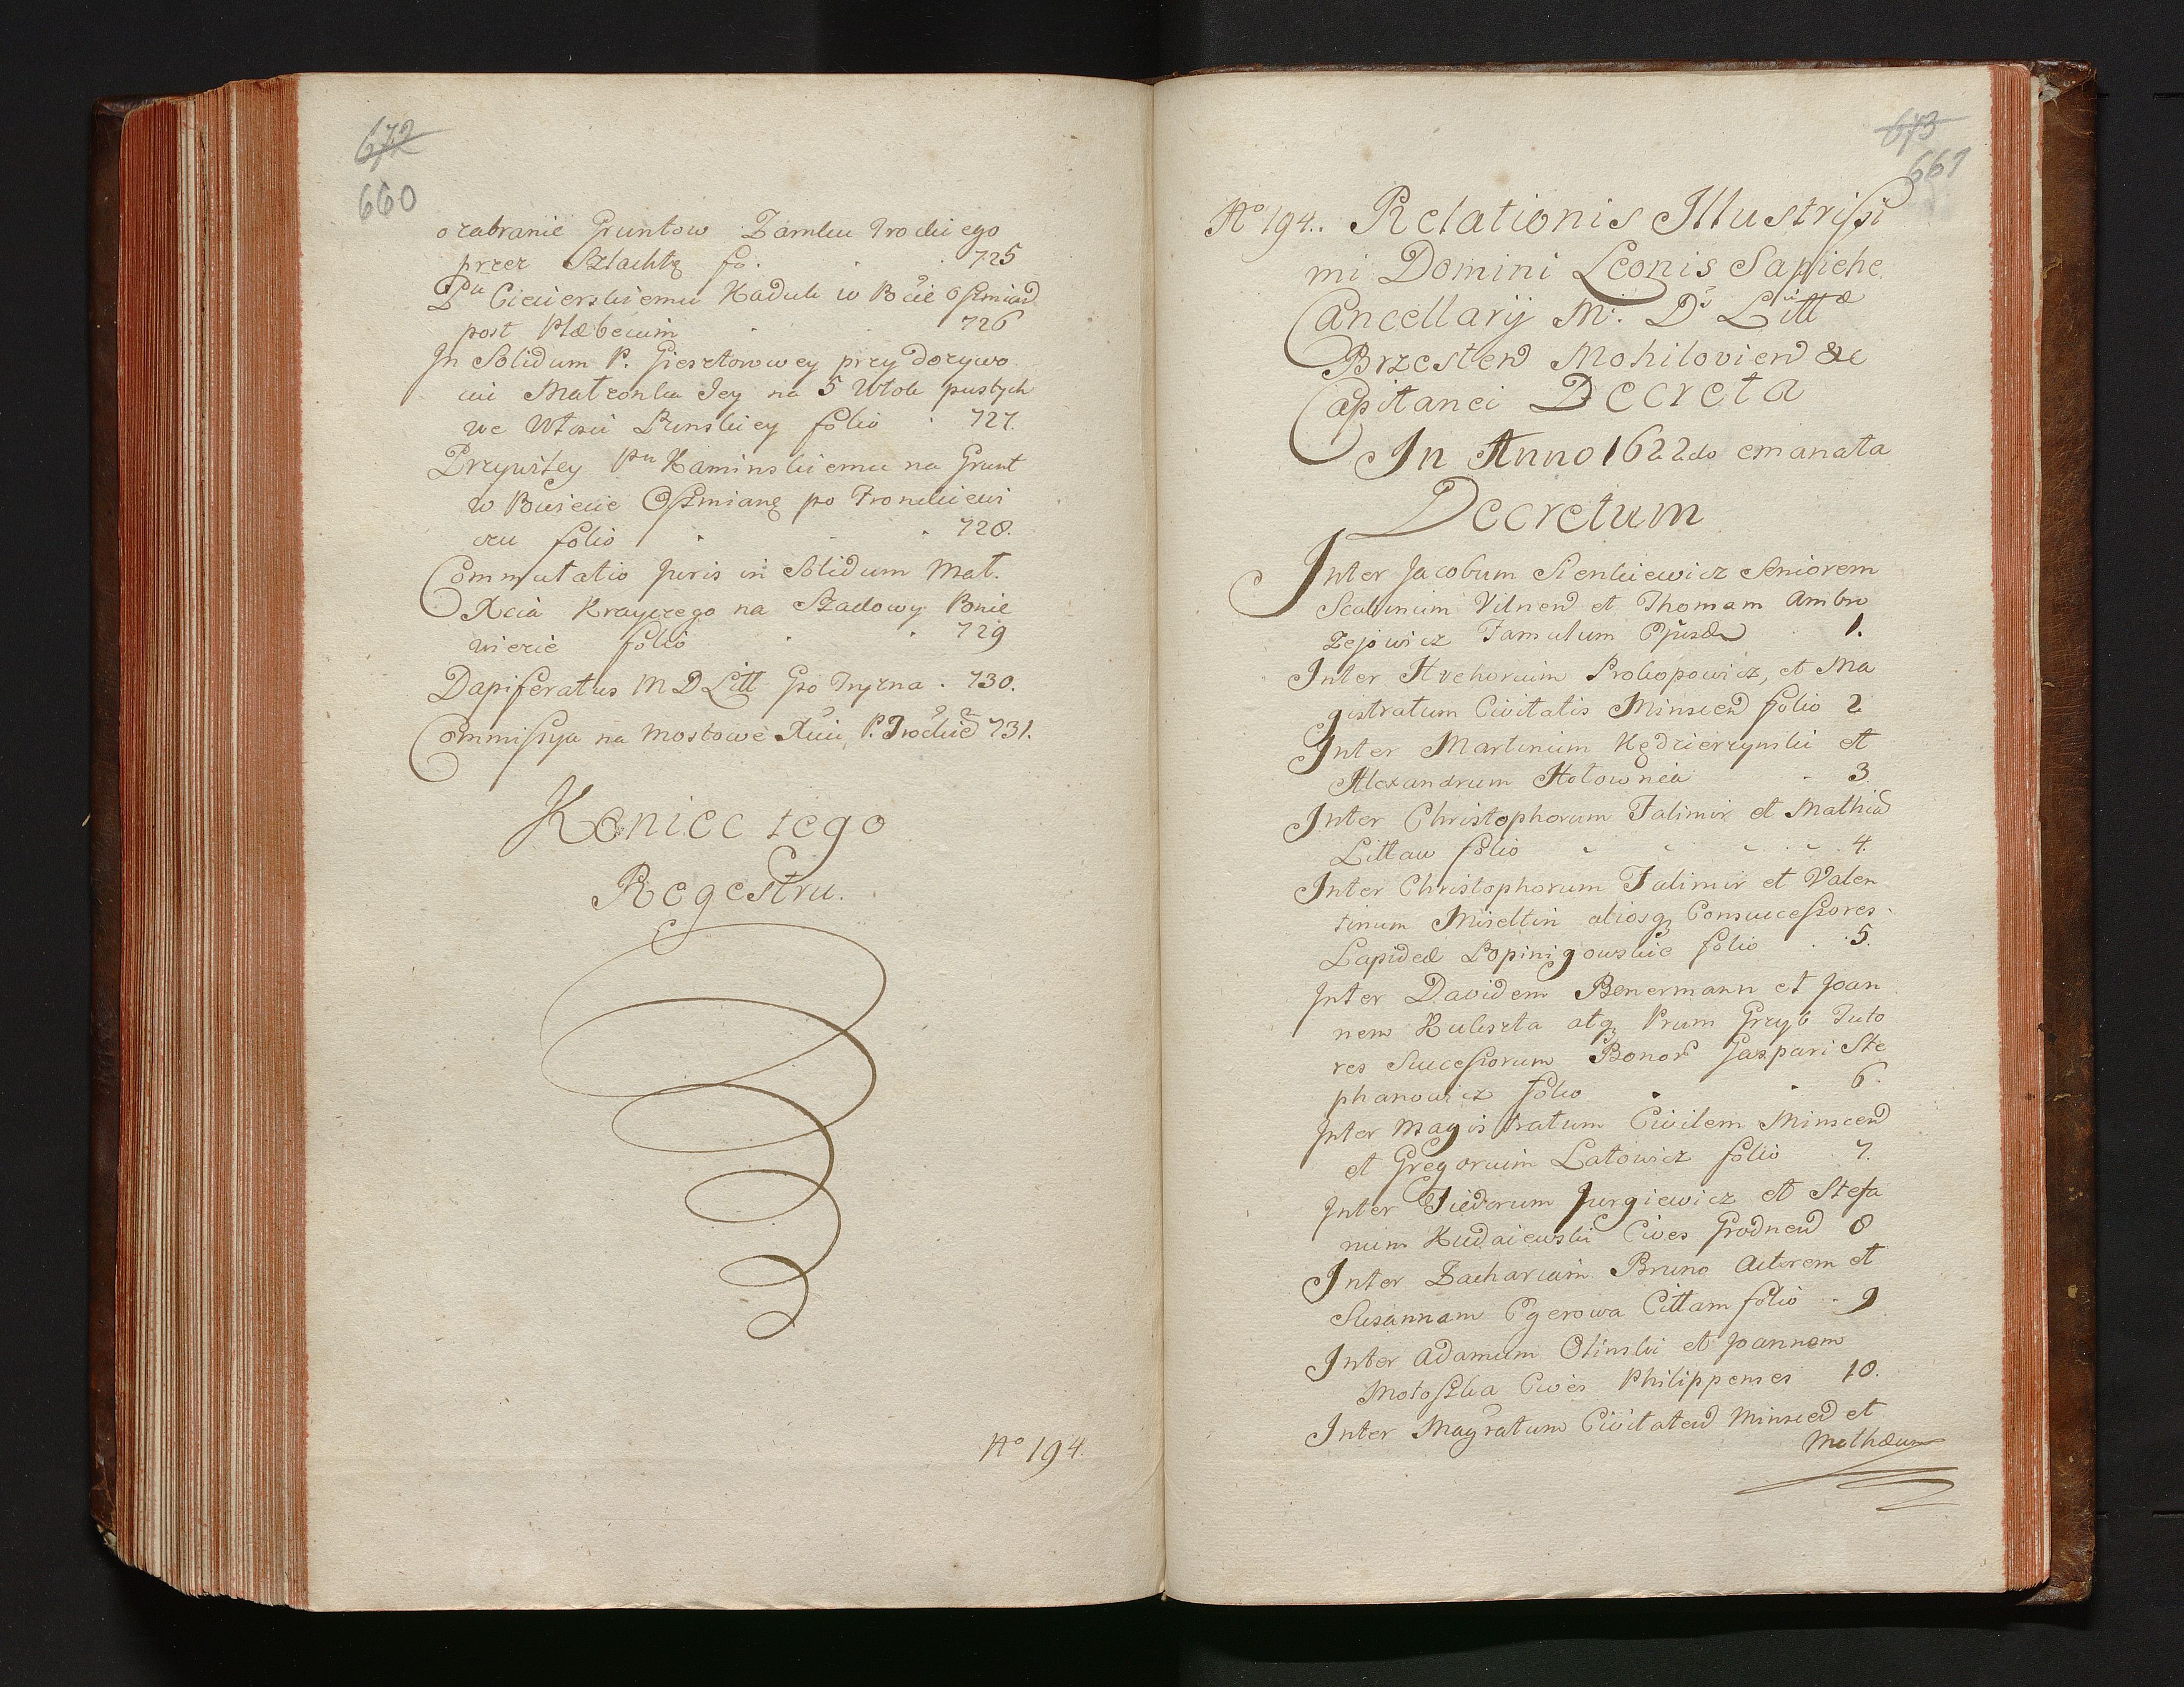 672
660
o zabranie Gruntow Zamku Trockiego
przez Szlachtę fo. 725
Pu Ciecierskiemu Kaduk w Pocie Oszmian
post Plæbeium 726
In Solidum P. Giesztorowey przy dozywo
ciu Małzonka Jey na 5 Włok pustych
we Włosci folio 727.
Przywiley Pu Kaminskiemu na Grunt
w Powiecie Oszmianę po Fronckiewi
czu folio 728.
Commutatio Juris in Solidum Mał.
Xcia Krayczego na Szadowy Ponie
wieżie folio 729
Dapiferatus M D Litt Gso Tryzna . 730.
Commissya na Mostowe Xciu P. Trockie 731.
Koniec tego
Regestru.
No 194.
673
661
No 194. Relationis Illustrissi
mi Domini Leonis Sapiehe
Cancellarij M. D. Litt
Brzesten Mohilovien &c
Capitanei Decreta
In Anno 1622do emanata
Decretum
Inter Jacobum Sienkiewicz Seniorem
Scabinum Vilnen et Thomam Ambro
zejowicz Famulum 1.
Inter Hrehorium Prokopowicz, et Ma
gistratum Civitatis Minscen folio 2
Inter Martinum Kędzierzynski et
Alexandrum Hołownia 3
Inter Christophorum Talimir et Mathia
Littaw folio 4.
Inter Christophorum Talimir et Valen
tinum Miseltin aliosq Consuccessores
Lapideæ Popinigowskie folio 5.
Inter Davidem Benermann et Joan
nem Kukszta atq Prum Gryb Tuto
res Successorum Bonor Gaspari Ste
phanowicz folio 6.
Inter Magistratum Civilem Minscen
et Gregorium Łatowicz folio 7.
Inter Fiedorum Jurgiewicz et Stefa
num Kudaiewski Cives Grodnen 8
Inter Zachariam Bruno Actorem et
Susannam Egerowa Cittam folio 9
Inter Adamum Olinski et Joannem
Motoszka Cives Philippenses 10.
Inter Magratum Civitaten Minscen et
Mathæum